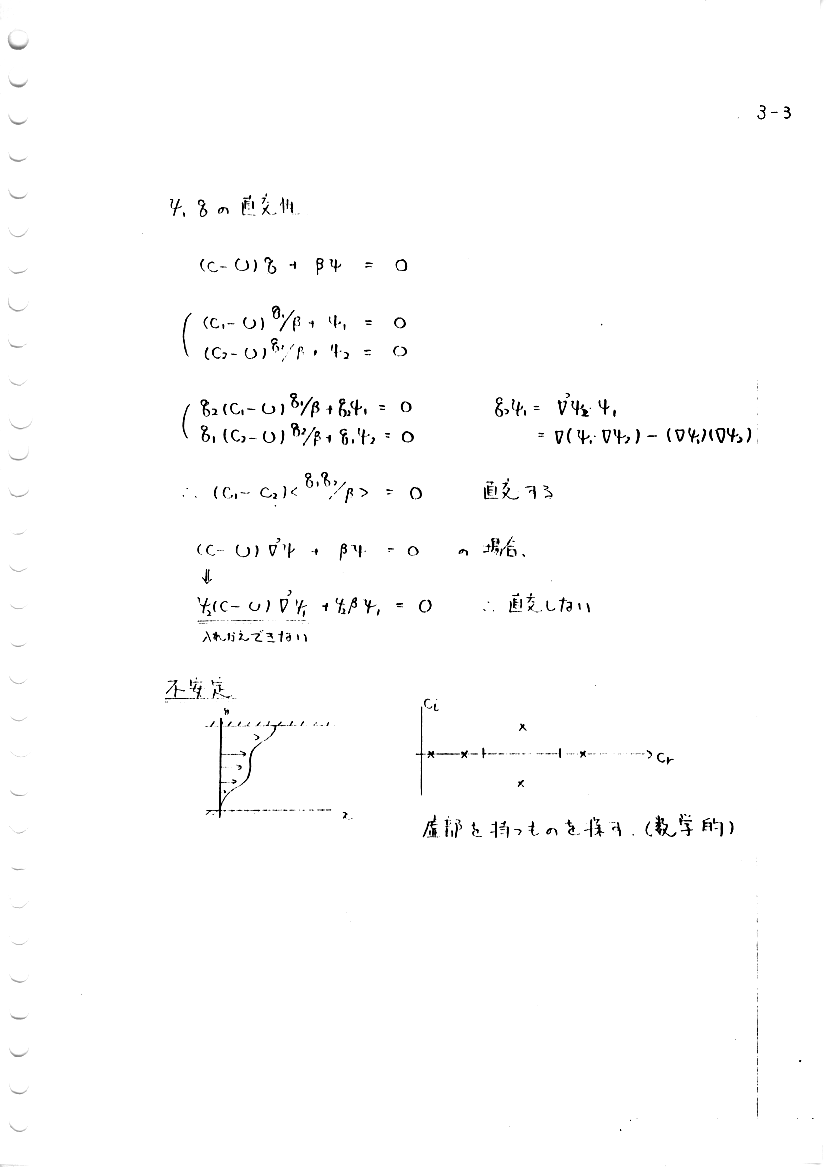 3-3
ψ, q の直交性
(C-U)q + βψ = 0
(C₁-U)q₁/β + ψ₁ = 0
(C₂-U)q₂/β + ψ₂ = 0
q₂(C₁-U)q₁/β + q₂ψ₁ = 0 q₂ψ₁ = ∇²ψ₂·ψ₁
q₁(C₂-U)q₂/β + q₁ψ₂ = 0 = ∇(ψ₁·∇ψ₂) - (∇ψ₁)(∇ψ₂)
∴ (C₁-C₂)<q₁q₂/β> = 0 直交する
(C-U)∇²ψ + βψ = 0 の場合、
⇓
ψ₂(C-U)∇²ψ₁ + ψ₂βψ₁ = 0 ∴ 直交しない
入れかえできない
不安定
Ci
× × × × ×
Cr
虚部を持つものを探す.(数学的)